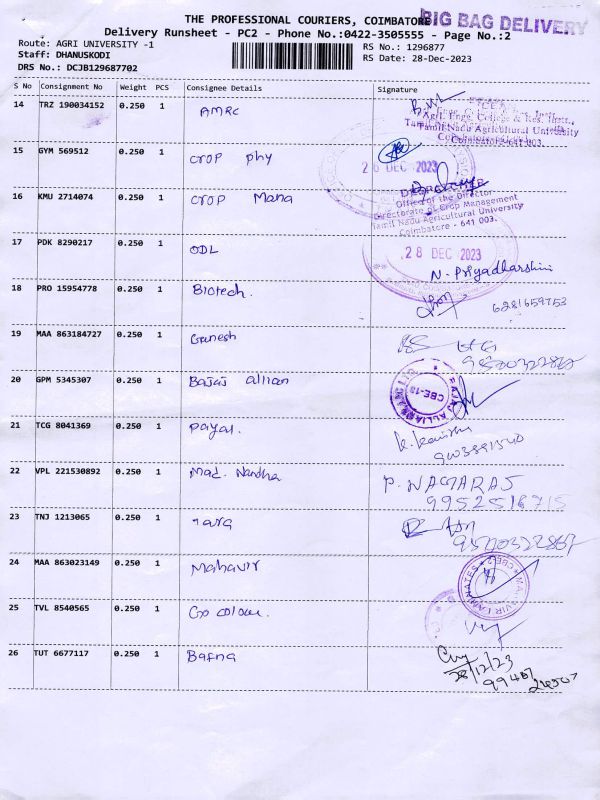 THE PROFESSIONAL COURIERS, COIMBATORE
BIG BAG DELIVERY
Delivery Runsheet - PC2 - Phone No.:0422-3505555 - Page No.:2
Route: AGRI UNIVERSITY -1
RS No.: 1296877
Staff: DHANUSKODI
RS Date: 28-Dec-2023
DRS No.: DCJB129687702
S No Consignment No Weight PCS Consignee Details Signature
14 TRZ 190034152 0.250 1 AMRC
Agrl. Engg. College & Res. Instt.,
Tamil Nadu Agricultural University
Coimbatore-641 003.
15 GYM 569512 0.250 1 crop phy
28 DEC 2023
16 KMU 2714074 0.250 1 crop Mana
Office of the Director
Directorate of Crop Management
Tamil Nadu Agricultural University
Coimbatore - 641 003.
17 PDK 8290217 0.250 1 ODL
28 DEC 2023
N. Priyadharshini
18 PRO 15954778 0.250 1 Biotech.
6281659753
19 MAA 863184727 0.250 1 Ganesh
20 GPM 5345307 0.250 1 Bajaj allian
CBE-18
21 TCG 8041369 0.250 1 Payal.
22 VPL 221530892 0.250 1 Mad. Nandha
P. NAGARAJ
9952518715
23 TNJ 1213065 0.250 1
9500322867
24 MAA 863023149 0.250 1 Mahavir
MAHAVIR LAMINATES
25 TVL 8540565 0.250 1 Go colour.
26 TUT 6677117 0.250 1 Bafna
28/12/23